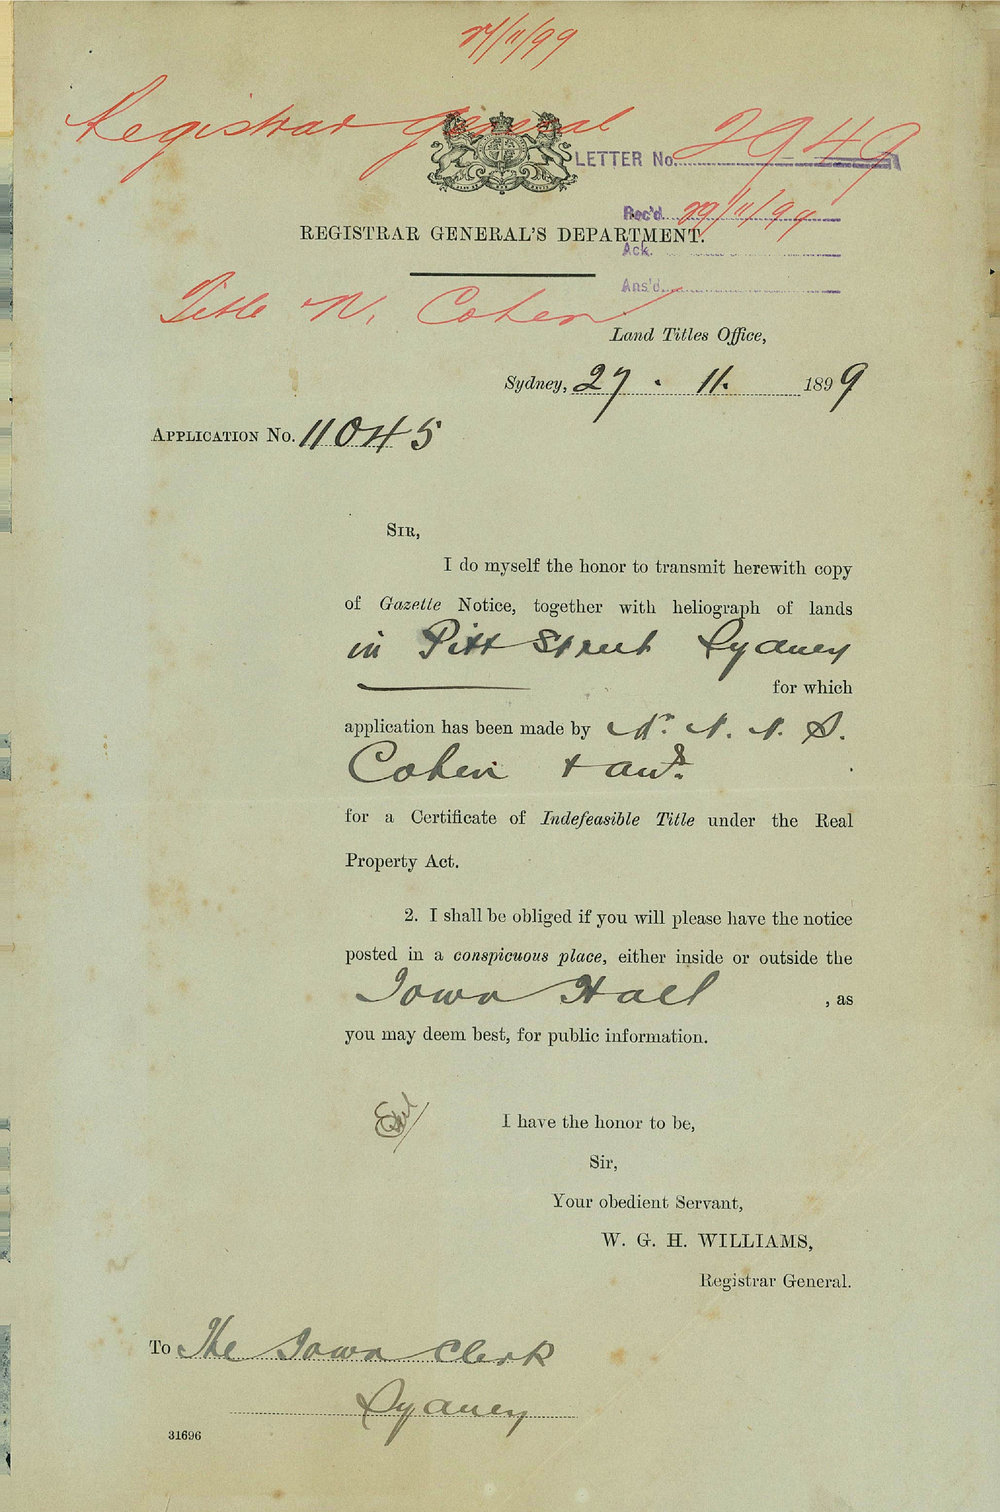 27/11/99
Registrar General
LETTER No. 2949
Rec'd. 29/11/99
REGISTRAR GENERAL'S DEPARTMENT.
Ack.
Ans'd.
Title N. Cohen
Land Titles Office,
Sydney, 27 . 11. 1899
APPLICATION No. 11045
SIR,
I do myself the honor to transmit herewith copy
of Gazette Notice, together with heliograph of lands
in Pitt Street Sydney
for which
application has been made by Mr. N. N. S.
Cohen & anr.
for a Certificate of Indefeasible Title under the Real
Property Act.
2. I shall be obliged if you will please have the notice
posted in a conspicuous place, either inside or outside the
Town Hall , as
you may deem best, for public information.
I have the honor to be,
Sir,
Your obedient Servant,
W. G. H. WILLIAMS,
Registrar General.
To The Town Clerk
Sydney
31696